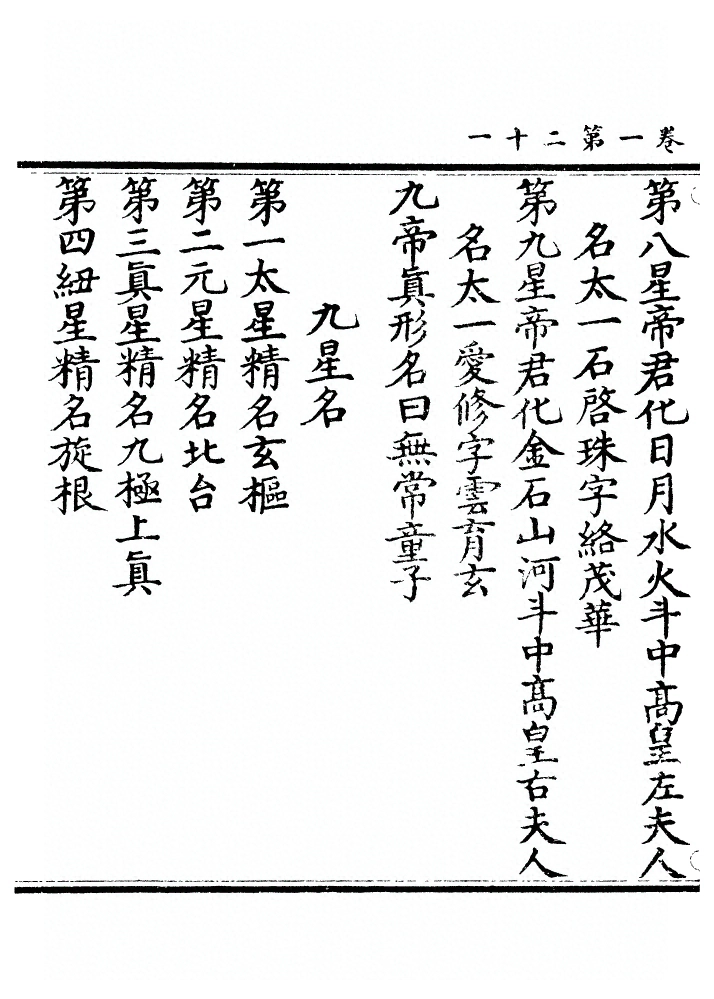 卷一第二十一
第八星帝君化日月水火斗中髙皇左夫人
名太一石啓珠字絡茂華
第九星帝君化金石山河斗中髙皇右夫人
名太一愛修字雲育玄
九帝眞形名曰無常童子
九星名
第一太星精名玄樞
第二元星精名北台
第三眞星精名九極上眞
第四紐星精名旋根